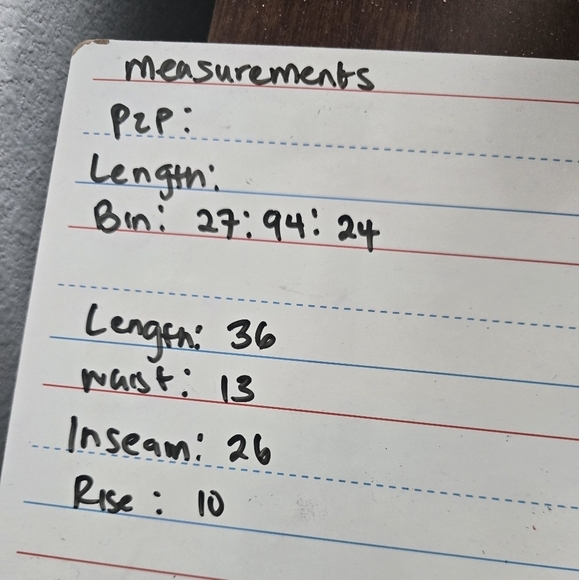 measurements
P2P:
Length:
Bin: 27:94:24
Length: 36
waist: 13
Inseam: 26
Rise: 10